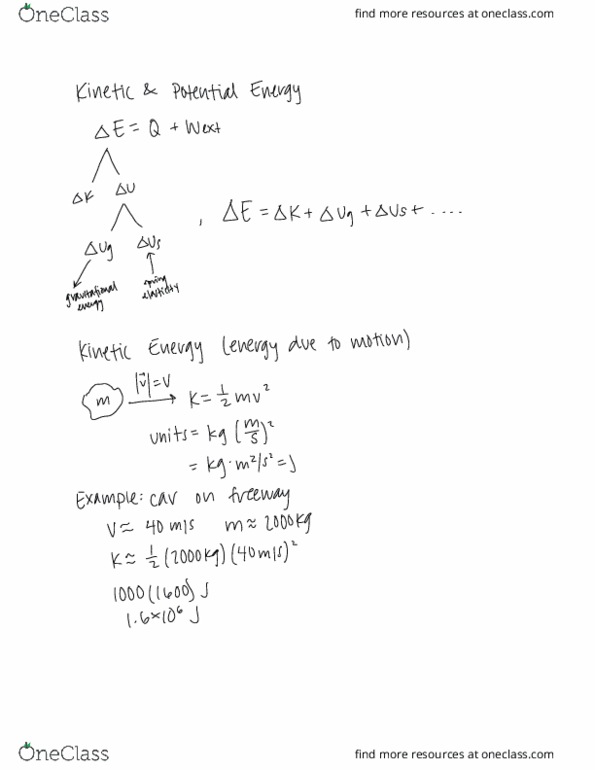 OneClass
find more resources at oneclass.com
Kinetic & Potential Energy
ΔE = Q + Wext
ΔK ΔU
, ΔE = ΔK + ΔUg + ΔUs + ....
ΔUg ΔUs
gravitational energy
spring elasticity
Kinetic Energy (energy due to motion)
m |v⃗|=v K = 1/2 mv²
units = kg (m/s)²
= kg·m²/s² = J
Example: car on freeway
V ≈ 40 m/s m ≈ 2000kg
K ≈ 1/2 (2000kg)(40m/s)²
1000(1600) J
1.6×10⁶ J
OneClass
find more resources at oneclass.com